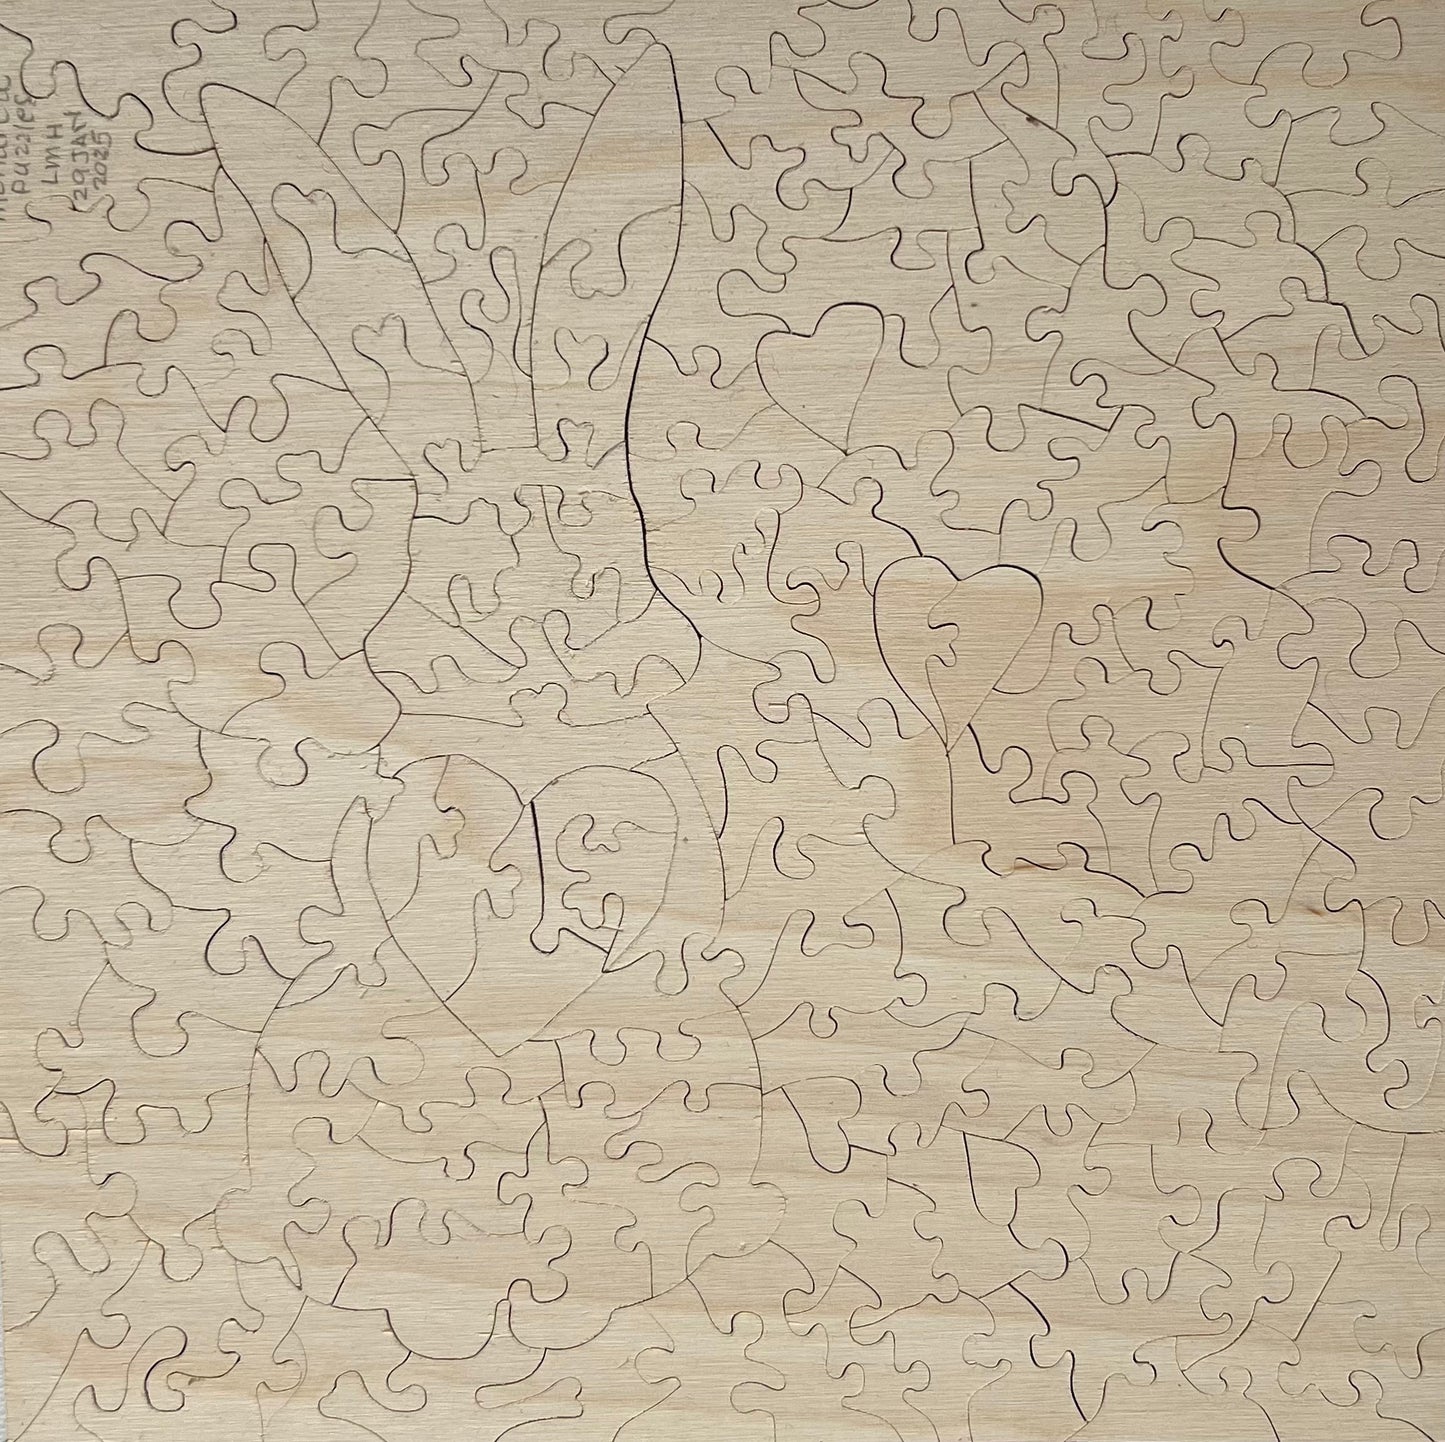 puzzles
LMH
29JAN
2025